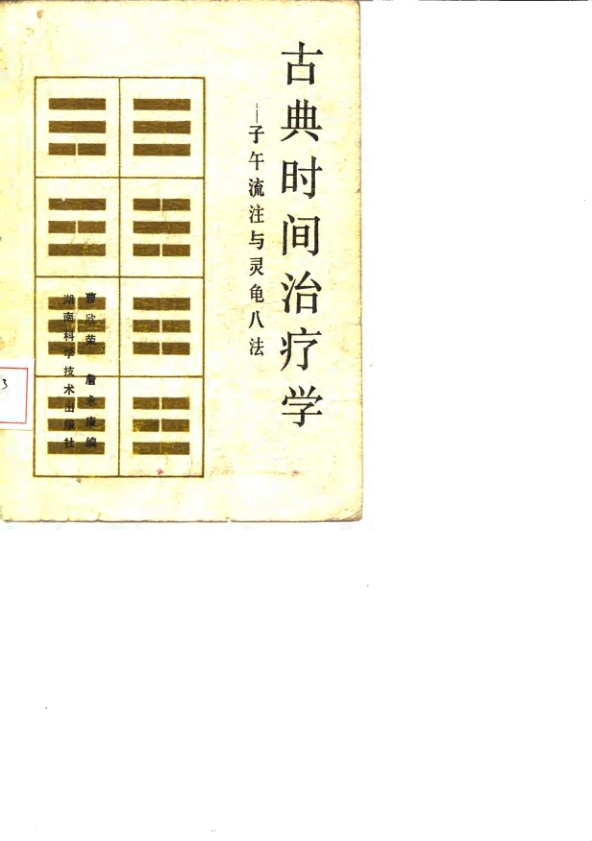 古典时间治疗学
—子午流注与灵龟八法
曹欣荣 詹永康编
湖南科学技术出版社
3